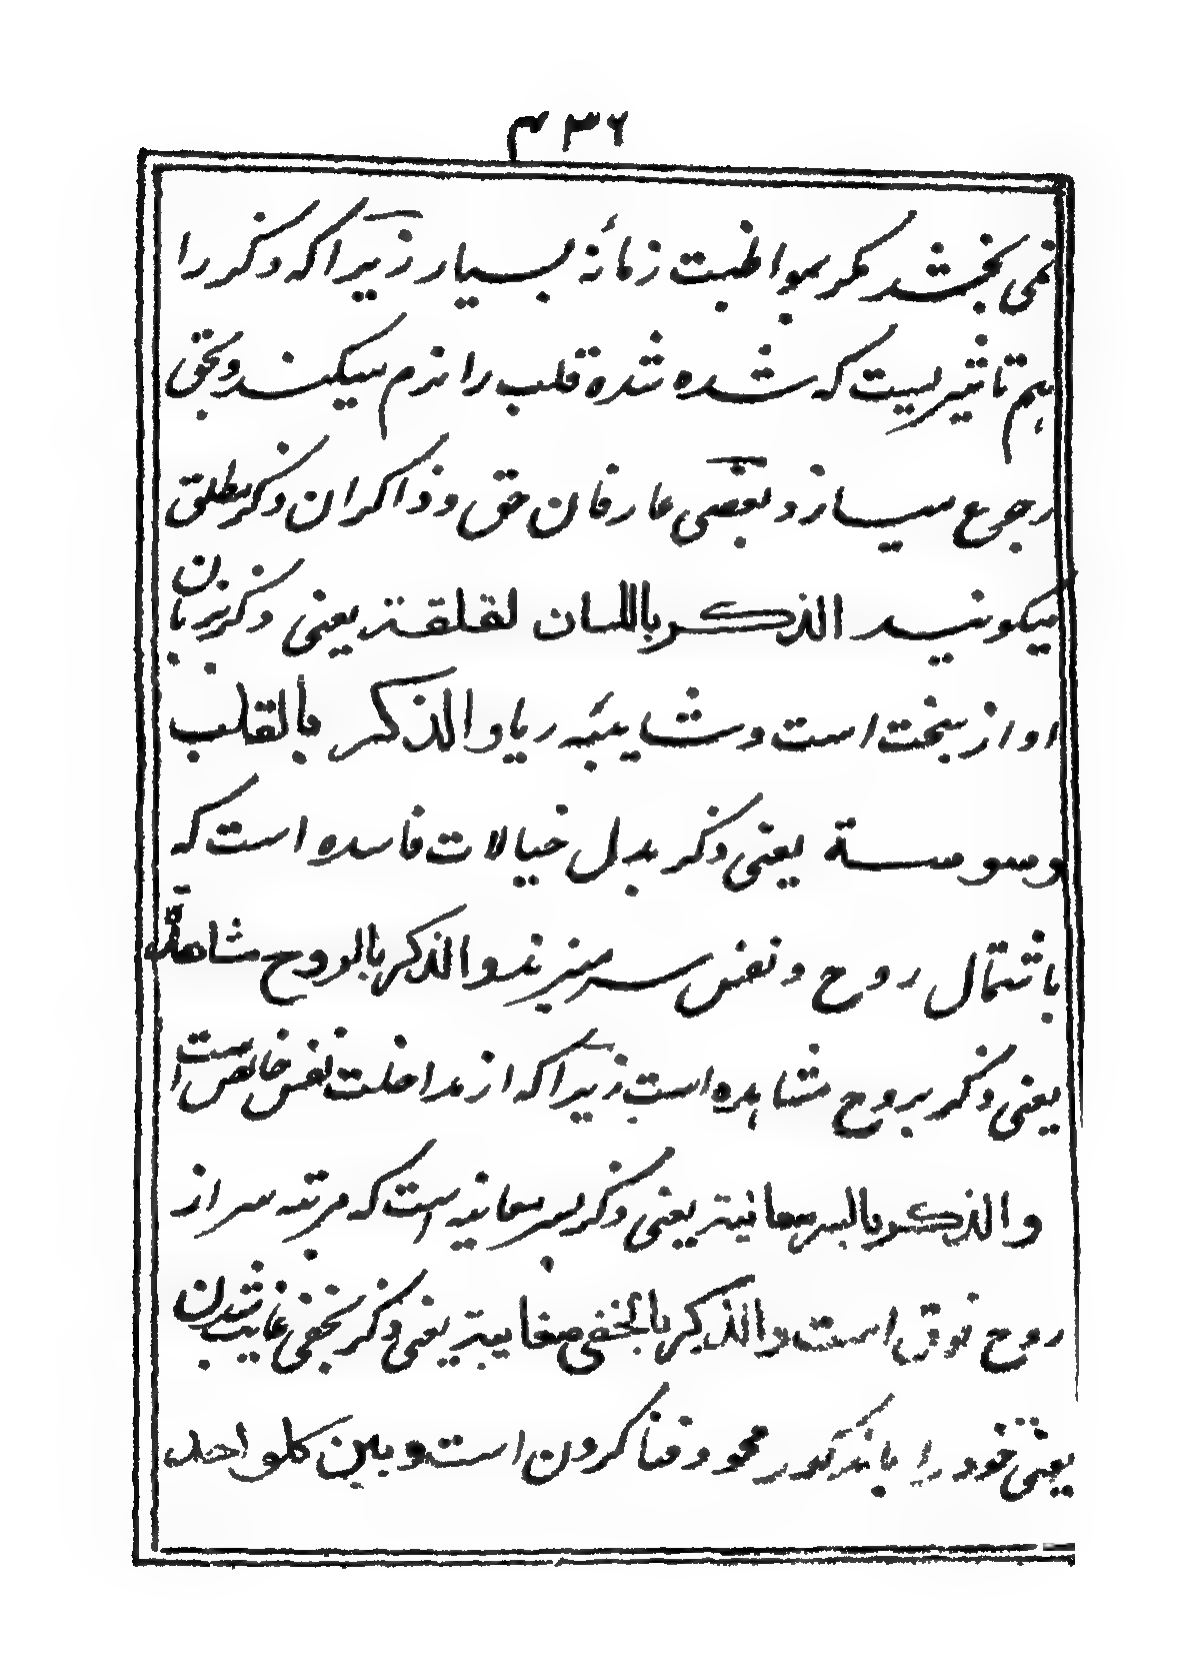 ۴۳۶
نمی بخشد مگر بمواظبت زمانۂ بسیار زیراکه ذکر را
هم تاثیریست که شده شده قلب را نرم میکند و بحق
رجوع میسازد و بعضی عارفان حق و ذاکران ذکر مطلق
میگویند الذکر باللسان لقلقة یعنی ذکر بزبان
اواز سخت است و شایبۂ ریا و الذکر بالقلب
وسوسة یعنی ذکر بدل خیالات فاسده است که
باشتمال روح و نفس سر میزند و الذکر بالروح مشاهدة
یعنی ذکر بروح مشاهده است زیراکه از مداخلت نفس خالص است
و الذکر بالسر معاینة یعنی ذکر بسر معاینه است که مرتبه سر از
روح فوق است و الذکر بالخفی مغایبة یعنی ذکر بخفی غایب شدن
یعنی خود را بمذکور محو و فنا کردن است و بین کل واحد